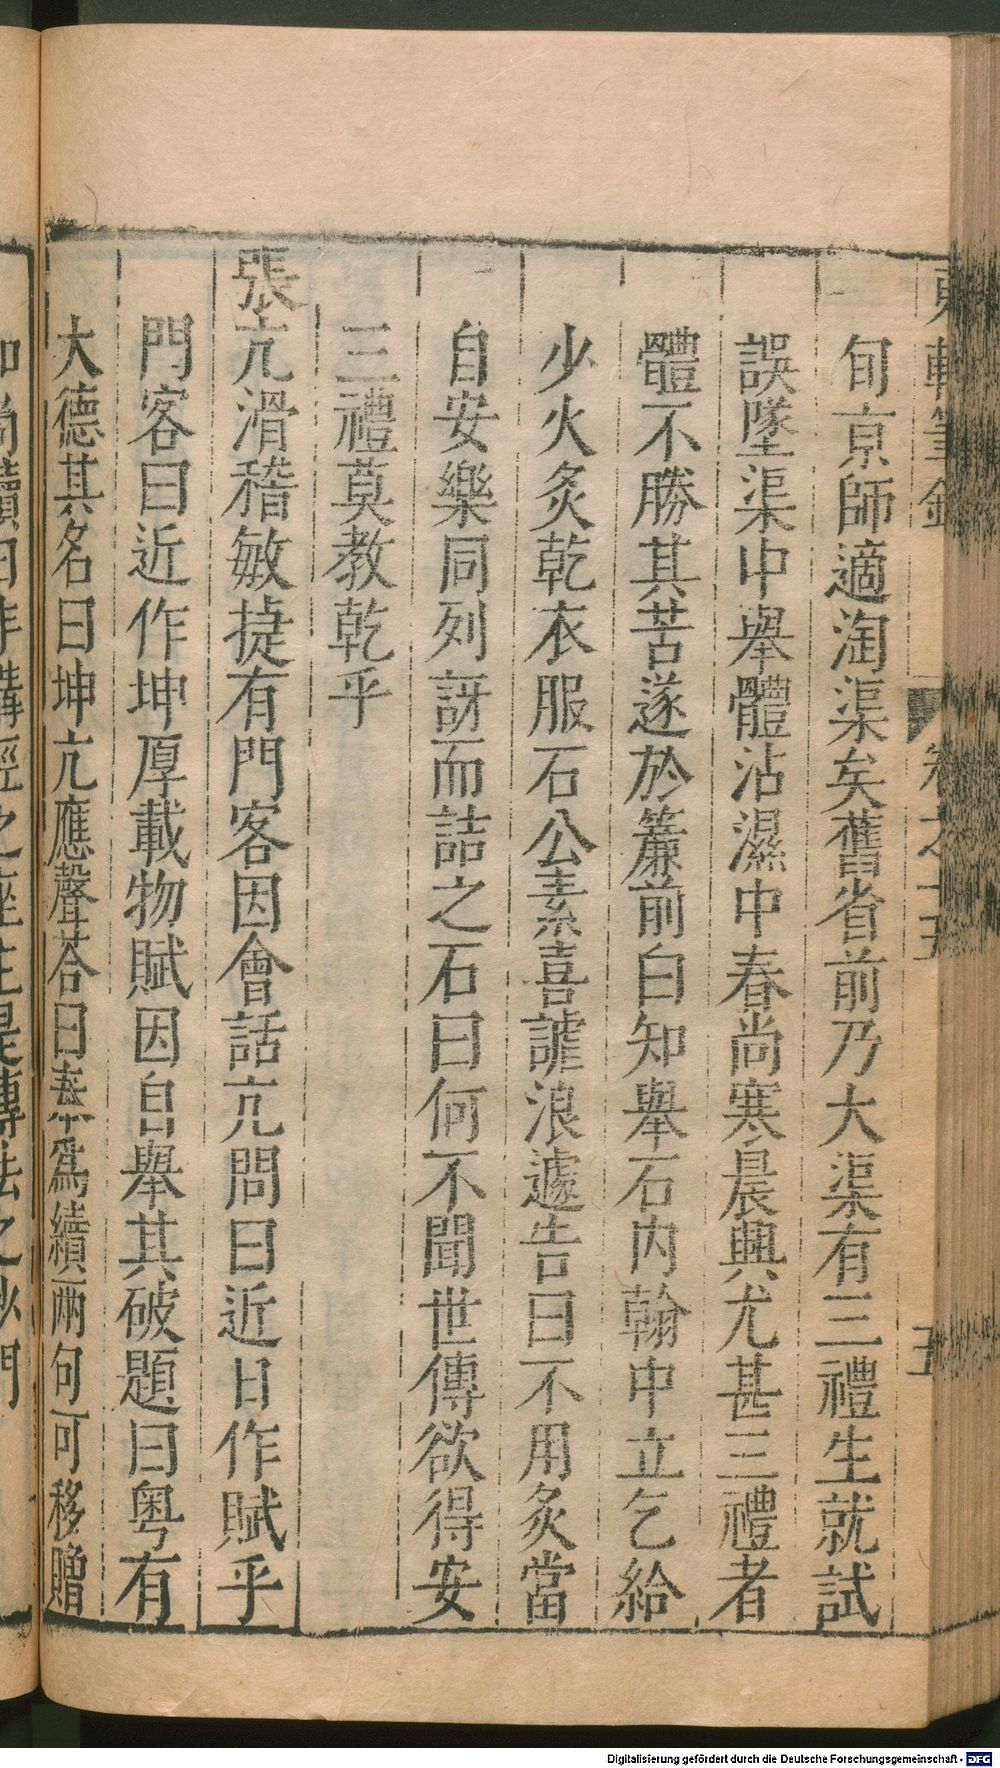 東軒筆錄 卷之十五 五
旬京師適淘渠矣舊省前乃大渠有三禮生就試
誤墜渠中舉體沾濕中春尚寒晨興尤甚三禮者
體不勝其苦遂於簾前白知舉石內翰中立乞給
少火炙乾衣服石公素喜謔浪遽告曰不用炙當
自安樂同列訝而詰之石曰何不聞世傳欲得安
三禮莫教乾乎
張亢滑稽敏捷有門客因會話亢問曰近日作賦乎
門客曰近作坤厚載物賦因自舉其破題曰粵有
大德其名曰坤亢應聲荅曰奉爲續兩句可移贈
和尚續曰非講經之座主是傳法之沙門
Digitalisierung gefördert durch die Deutsche Forschungsgemeinschaft - DFG